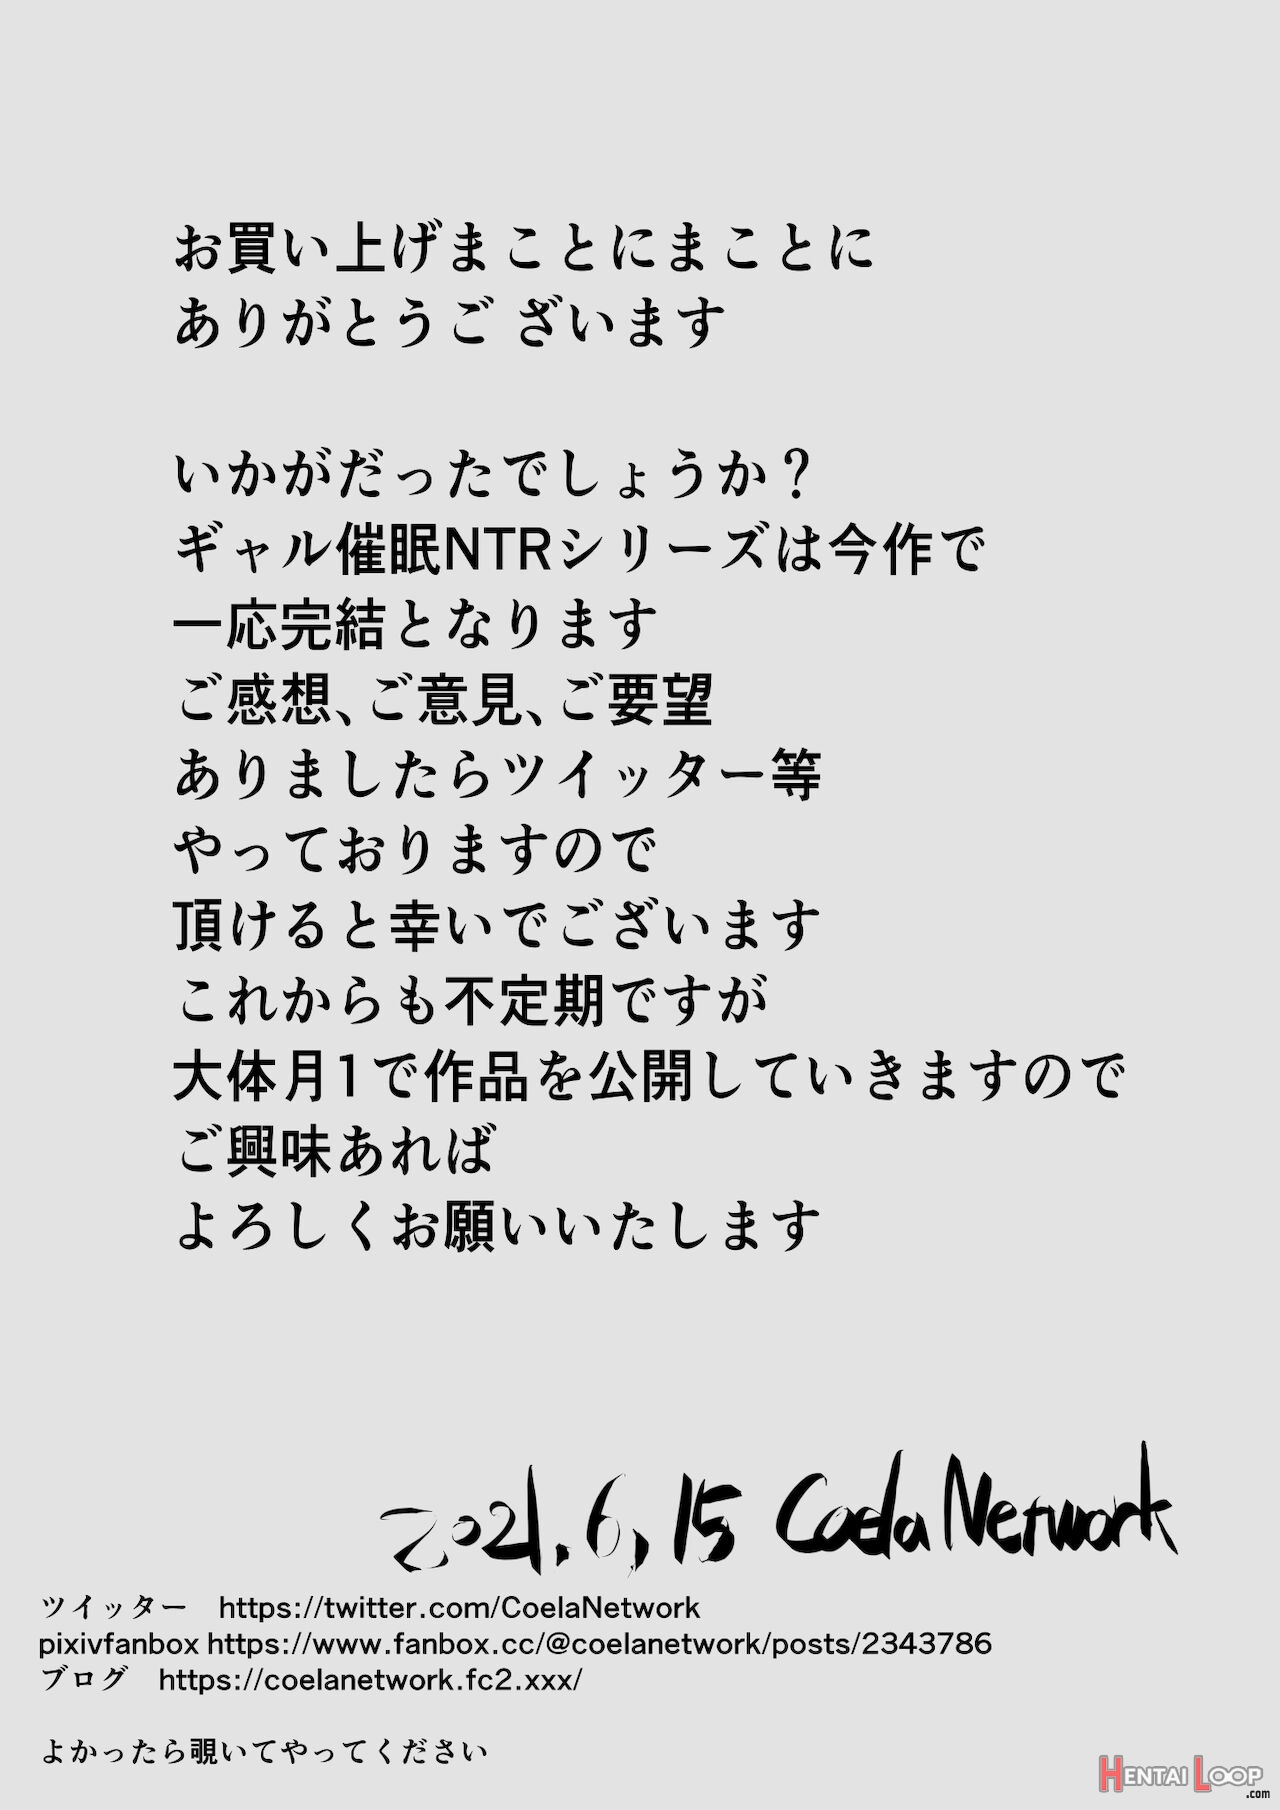 お買い上げまことにまことに
ありがとうご ざいます
いかがだったでしょうか？
ギャル催眠NTRシリーズは今作で
一応完結となります
ご感想、ご意見、ご要望
ありましたらツイッター等
やっておりますので
頂けると幸いでございます
これからも不定期ですが
大体月1で作品を公開していきますので
ご興味あれば
よろしくお願いいたします
2021.6,15 Coela Network
ツイッター　https://twitter.com/CoelaNetwork
pixivfanbox https://www.fanbox.cc/@coelanetwork/posts/2343786
ブログ　https://coelanetwork.fc2.xxx/
よかったら覗いてやってください
HENTAI LOOP
.com